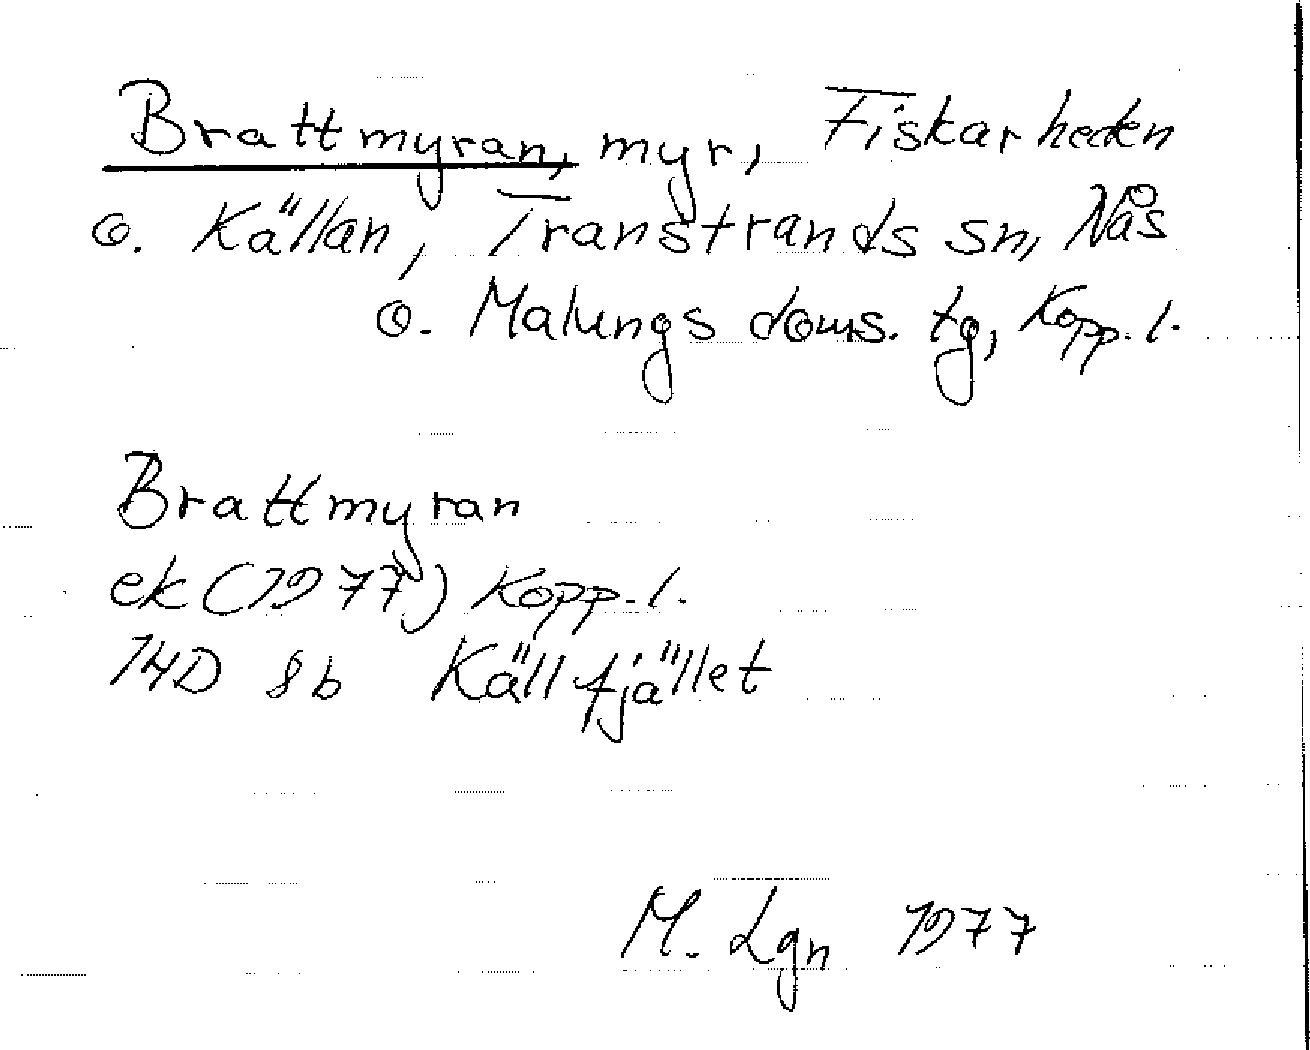 Brattmyran, myr, Fiskarheden
o. Källan, Transtrands sn, Nås
o. Malungs doms. tg, Kopp. l.
Brattmyran
ek (1977) Kopp. l.
14D 8b Källfjället
M. Lgn 1977